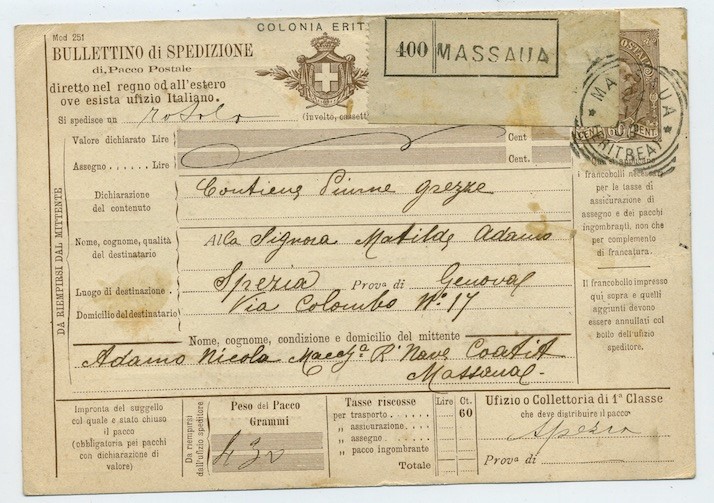 Mod 251
COLONIA ERIT
BULLETTINO di SPEDIZIONE
di Pacco Postale
diretto nel regno od all'estero
ove esista ufizio Italiano.
400 MASSAUA
MASSAUA
ERITREA
CENT CENT
Si spedisce un rotolo (involto, cassett
Valore dichiarato Lire Cent
Assegno Lire Cent.
DA RIEMPIRSI DAL MITTENTE
Dichiarazione
del contenuto
Contiene Piume grezze
Nome, cognome, qualità
del destinatario
Alla Signora Matilde Adamo
Luogo di destinazione
Spezia Prov.a di Genova
Domicilio del destinatario
Via Colombo N.° 17
Nome, cognome, condizione e domicilio del mittente
Adamo Nicola Macch.a R. Nave Coatit
Massaua.
francobolli necessari
per le tasse di
assicurazione di
assegno e dei pacchi
ingombranti, non che
per complemento
di francatura.
Il francobollo impresso
qui sopra e quelli
aggiunti devono
essere annullati col
bollo dell'ufizio
speditore.
Impronta del suggello
col quale e stato chiuso
il pacco
(obbligatoria pei pacchi
con dichiarazione di
valore)
Da riempirsi
dall'ufizio speditore
Peso del Pacco
Grammi
430
Tasse riscosse Lire Ct.
per trasporto 60
„ assicurazione
„ assegno
„ pacco ingombrante
Totale
Ufizio o Collettoria di 1ª Classe
che deve distribuire il pacco
Spezia
Prov.a di